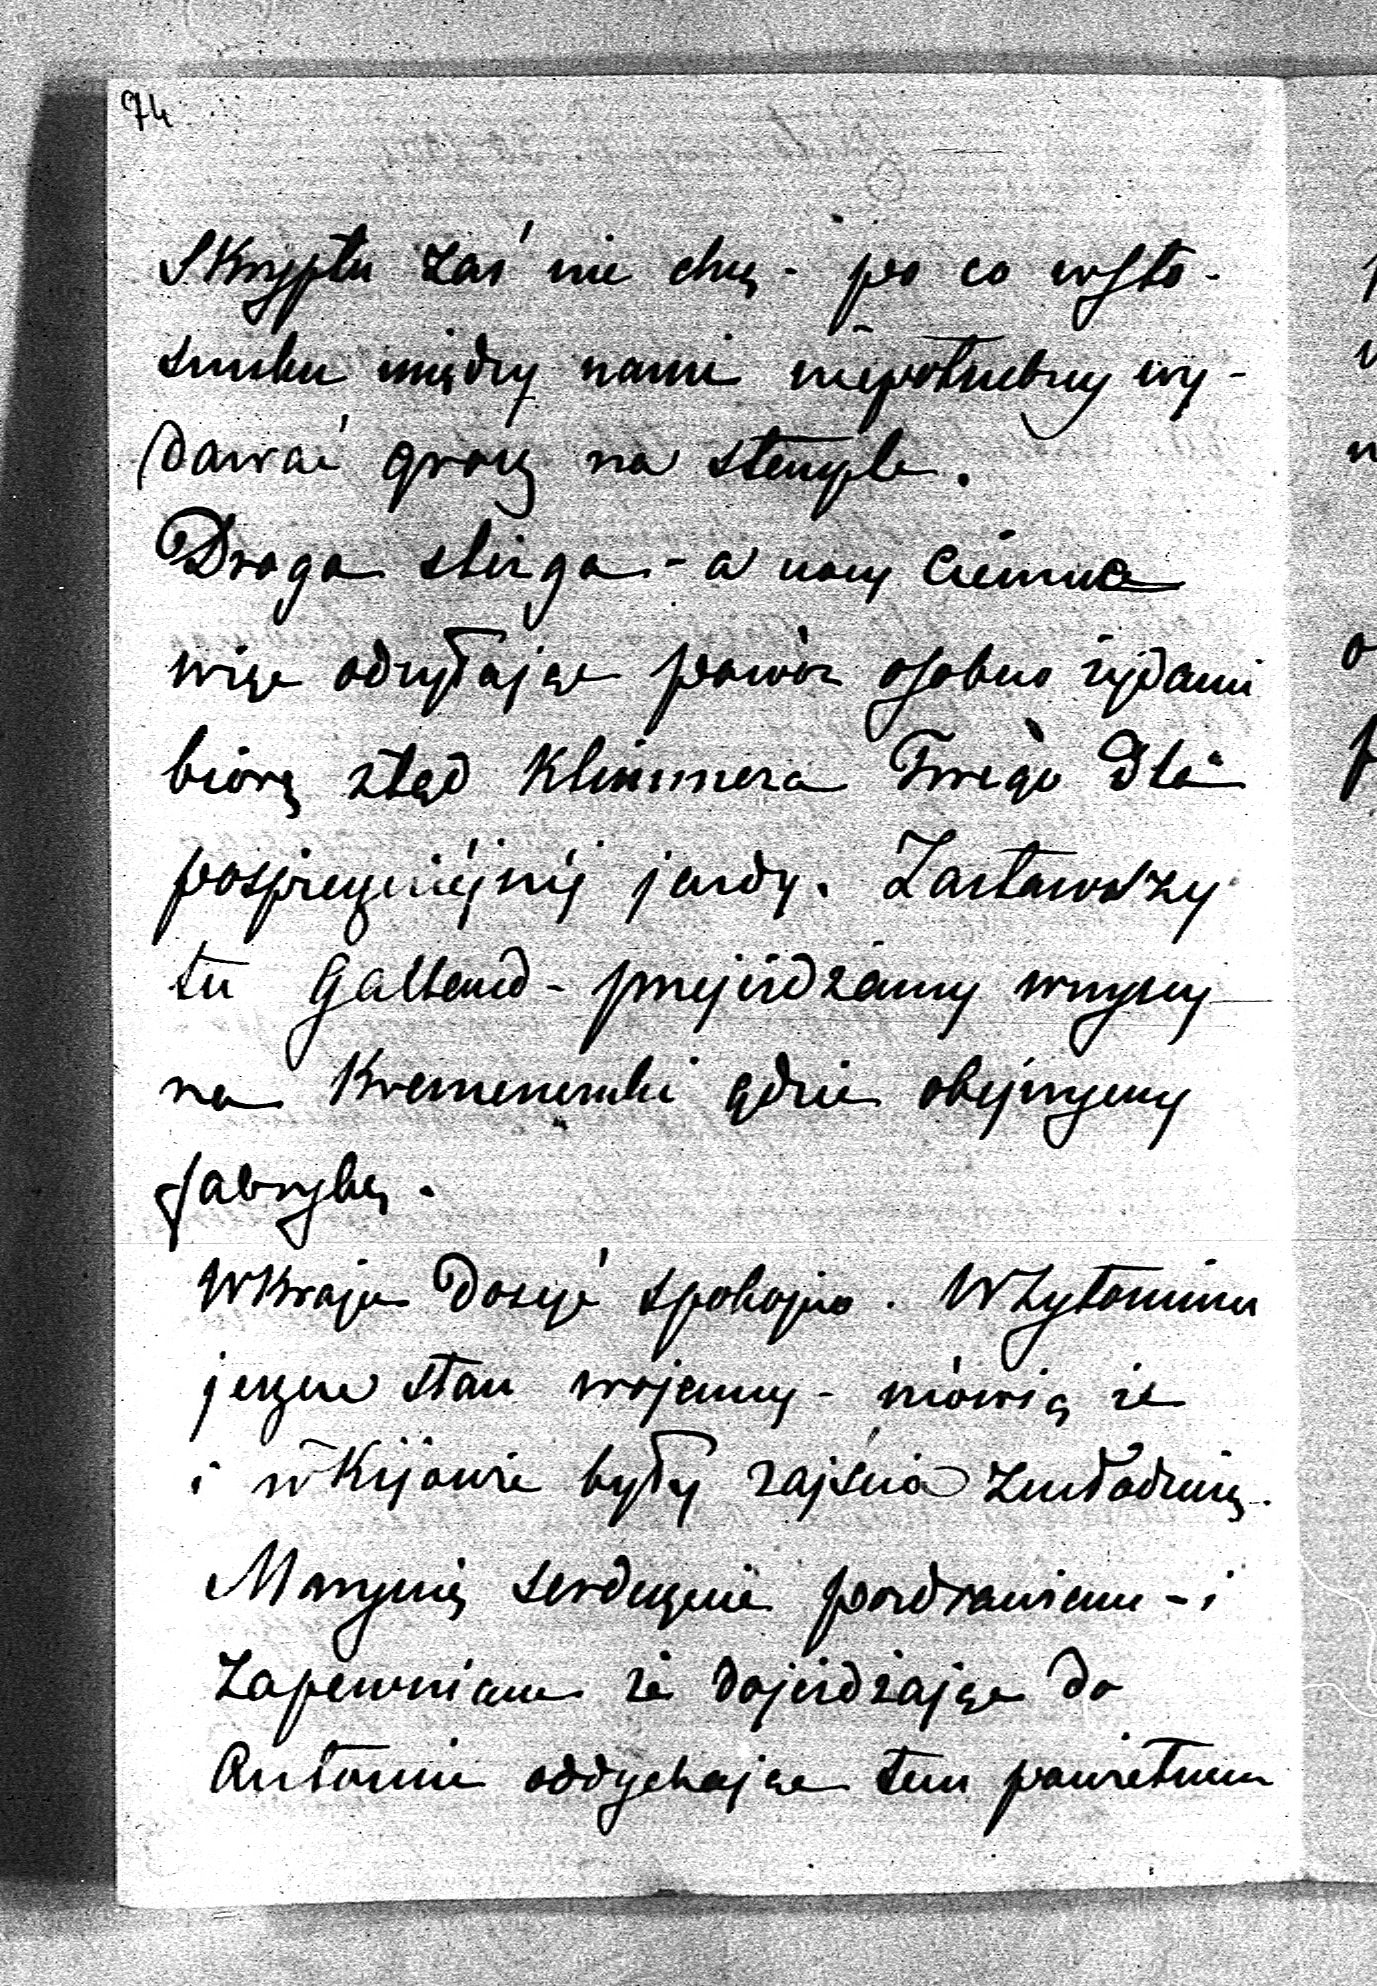 74
Skryptu zaś nie chcę - po co w sto-
sunku między nami niepotrzebny wy-
dawać grosz na stemple.
Droga ślizga - a nocy ciemne
więc odsyłając powóz osobno żydami
biorę ztąd Klimmera Twego dla
pospieszniejszéj jazdy. Zastawszy
tu - przejeżdżamy wszyscy
na gdzie obejrzymy
fabrykę.
W Kraju dosyć spokojno. W Żytomirzu
jeszcze stan wojenny - mówią że
i w Kijowie były zajścia z młodzieżą.
Marynię serdecznie pozdrawiam - i
zapewniam że dojeżdżając do
Antonin oddychając tem powietrzem